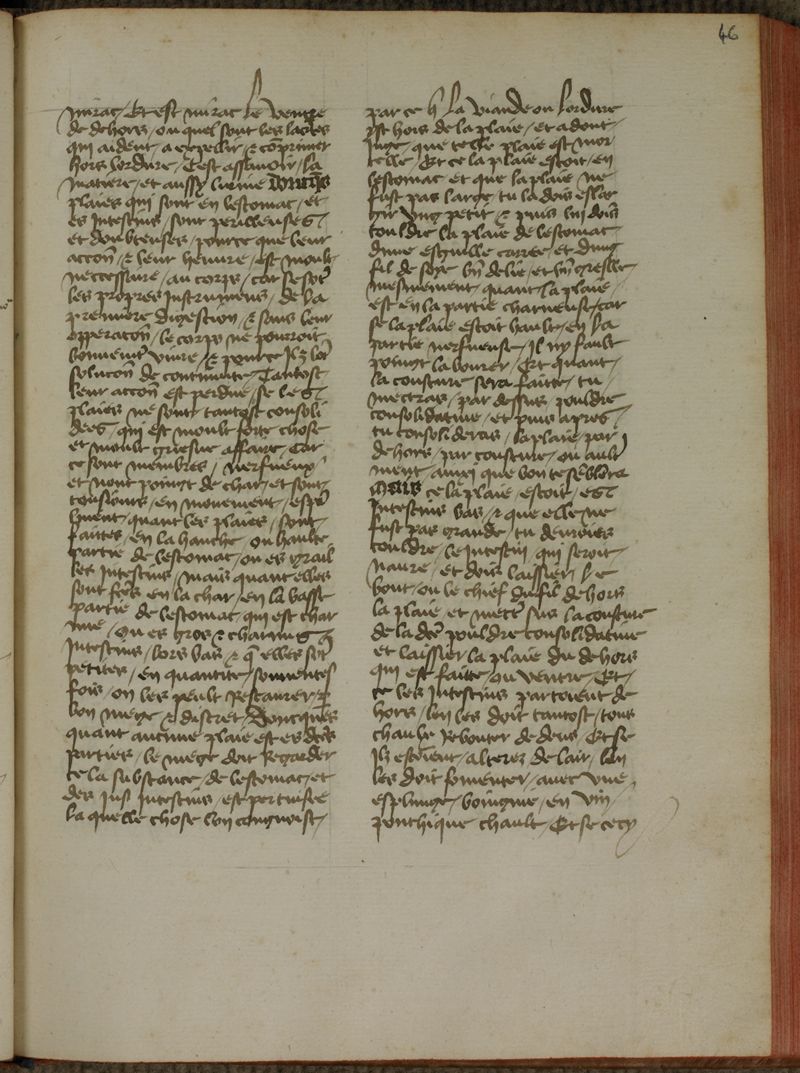 46
mirac / Et est mirac le ventre
de dehors / ou quel sont les lactes
qui aident / a expellir / et co͞primer
hors lordure / Cest assauoir / la
matiere / et aussy lurine
plaies qui sont en lestomac / et
es Intestins / sont perilleuses /
et doubteuses / pource que leur
accoñ / et leur heuure / est moult
neccessaire / au corps / car se sõt
les propres Instrumens / de la
premiere digestion / et sans leur
opperacoñ / le corps ne pourroit
bonnemẽt viure / et pource Ilz lõ
solucoñ de continuite / Tantost
leur accoñ est perdue / se les
plaies ne sont tantost consoli
dees / qui est moult forte chose
et moult griesue affaire / Car
ce sont membres / nerfueux /
et nont poingt de char / et sont
tousiours / en mouement / esp̃
lment / quant les plaies / sont
faites / en la hanche / ou haulte
partie de lestomac / ou es grail
les Intestins / Mais quant elles
sont fces en la char / en la basse
partie de lestomac / qui est char
nue / Ou es gros et charnus
Intestins / lors bas / et q̃ elles sõt
petites / en quantite / souuentes
fois / on les peult restaurer /
bon mege et discret / Doncques
quant aucune plaie est es dc̃es
parties / le mege doit Regarder
se la substance / de lestomac / et
des Intestins / est pertuisee
la quelle chose lon congnoist /
par ce q̃ La viande ou lordure
yst hors de la plaie / et adont /
Juge / que telle plaie est mor
telle / Et ce la plaie estoit / en
lestomac et que la plaie ne
fust pas large / tu la dois eslar
gir vng petit / et puis lui dois
couldre la plaie de lestomac
dune esguille carree / et dung
fil de soye bñ delie / et bñ gresle
mesmement / quant la plaie /
est en la partie charneuse / car
se la plaie estoit hault / en la
partie nerfueuse / Il ny fault
poingt labourer / Et quant /
la cousture sera faitte / tu /
mectras / par dessus / pouldre
consolidatiue / et puis apres /
tu consolideras / la plaie / par
dehors / par cousture / ou ault
ment / ainsi que bon te sẽblera
Mais ce la plaie / estoit / es
Intestins bas / et que elle ne
fust pas grande / tu deuroies
couldre / le intestin / qui seroit
naure / et dois laissier / le
bout / ou le chief du fil de hors
la plaie et mectẽ sus la cousture
de la dc̃e pouldre consolidatiue
et laissier la plaie du dehors
qui est faitte / ou ventre / Et /
ce les Intestins partoient de
hors / lon les doit tantost / tous
chaulx Rebouter dedens / Et se
Ilz estoient / alterez de lair / lon
les doit fomenter / auec vne
esponge / boingne / en vin /
ponthique chault / Et se cecy